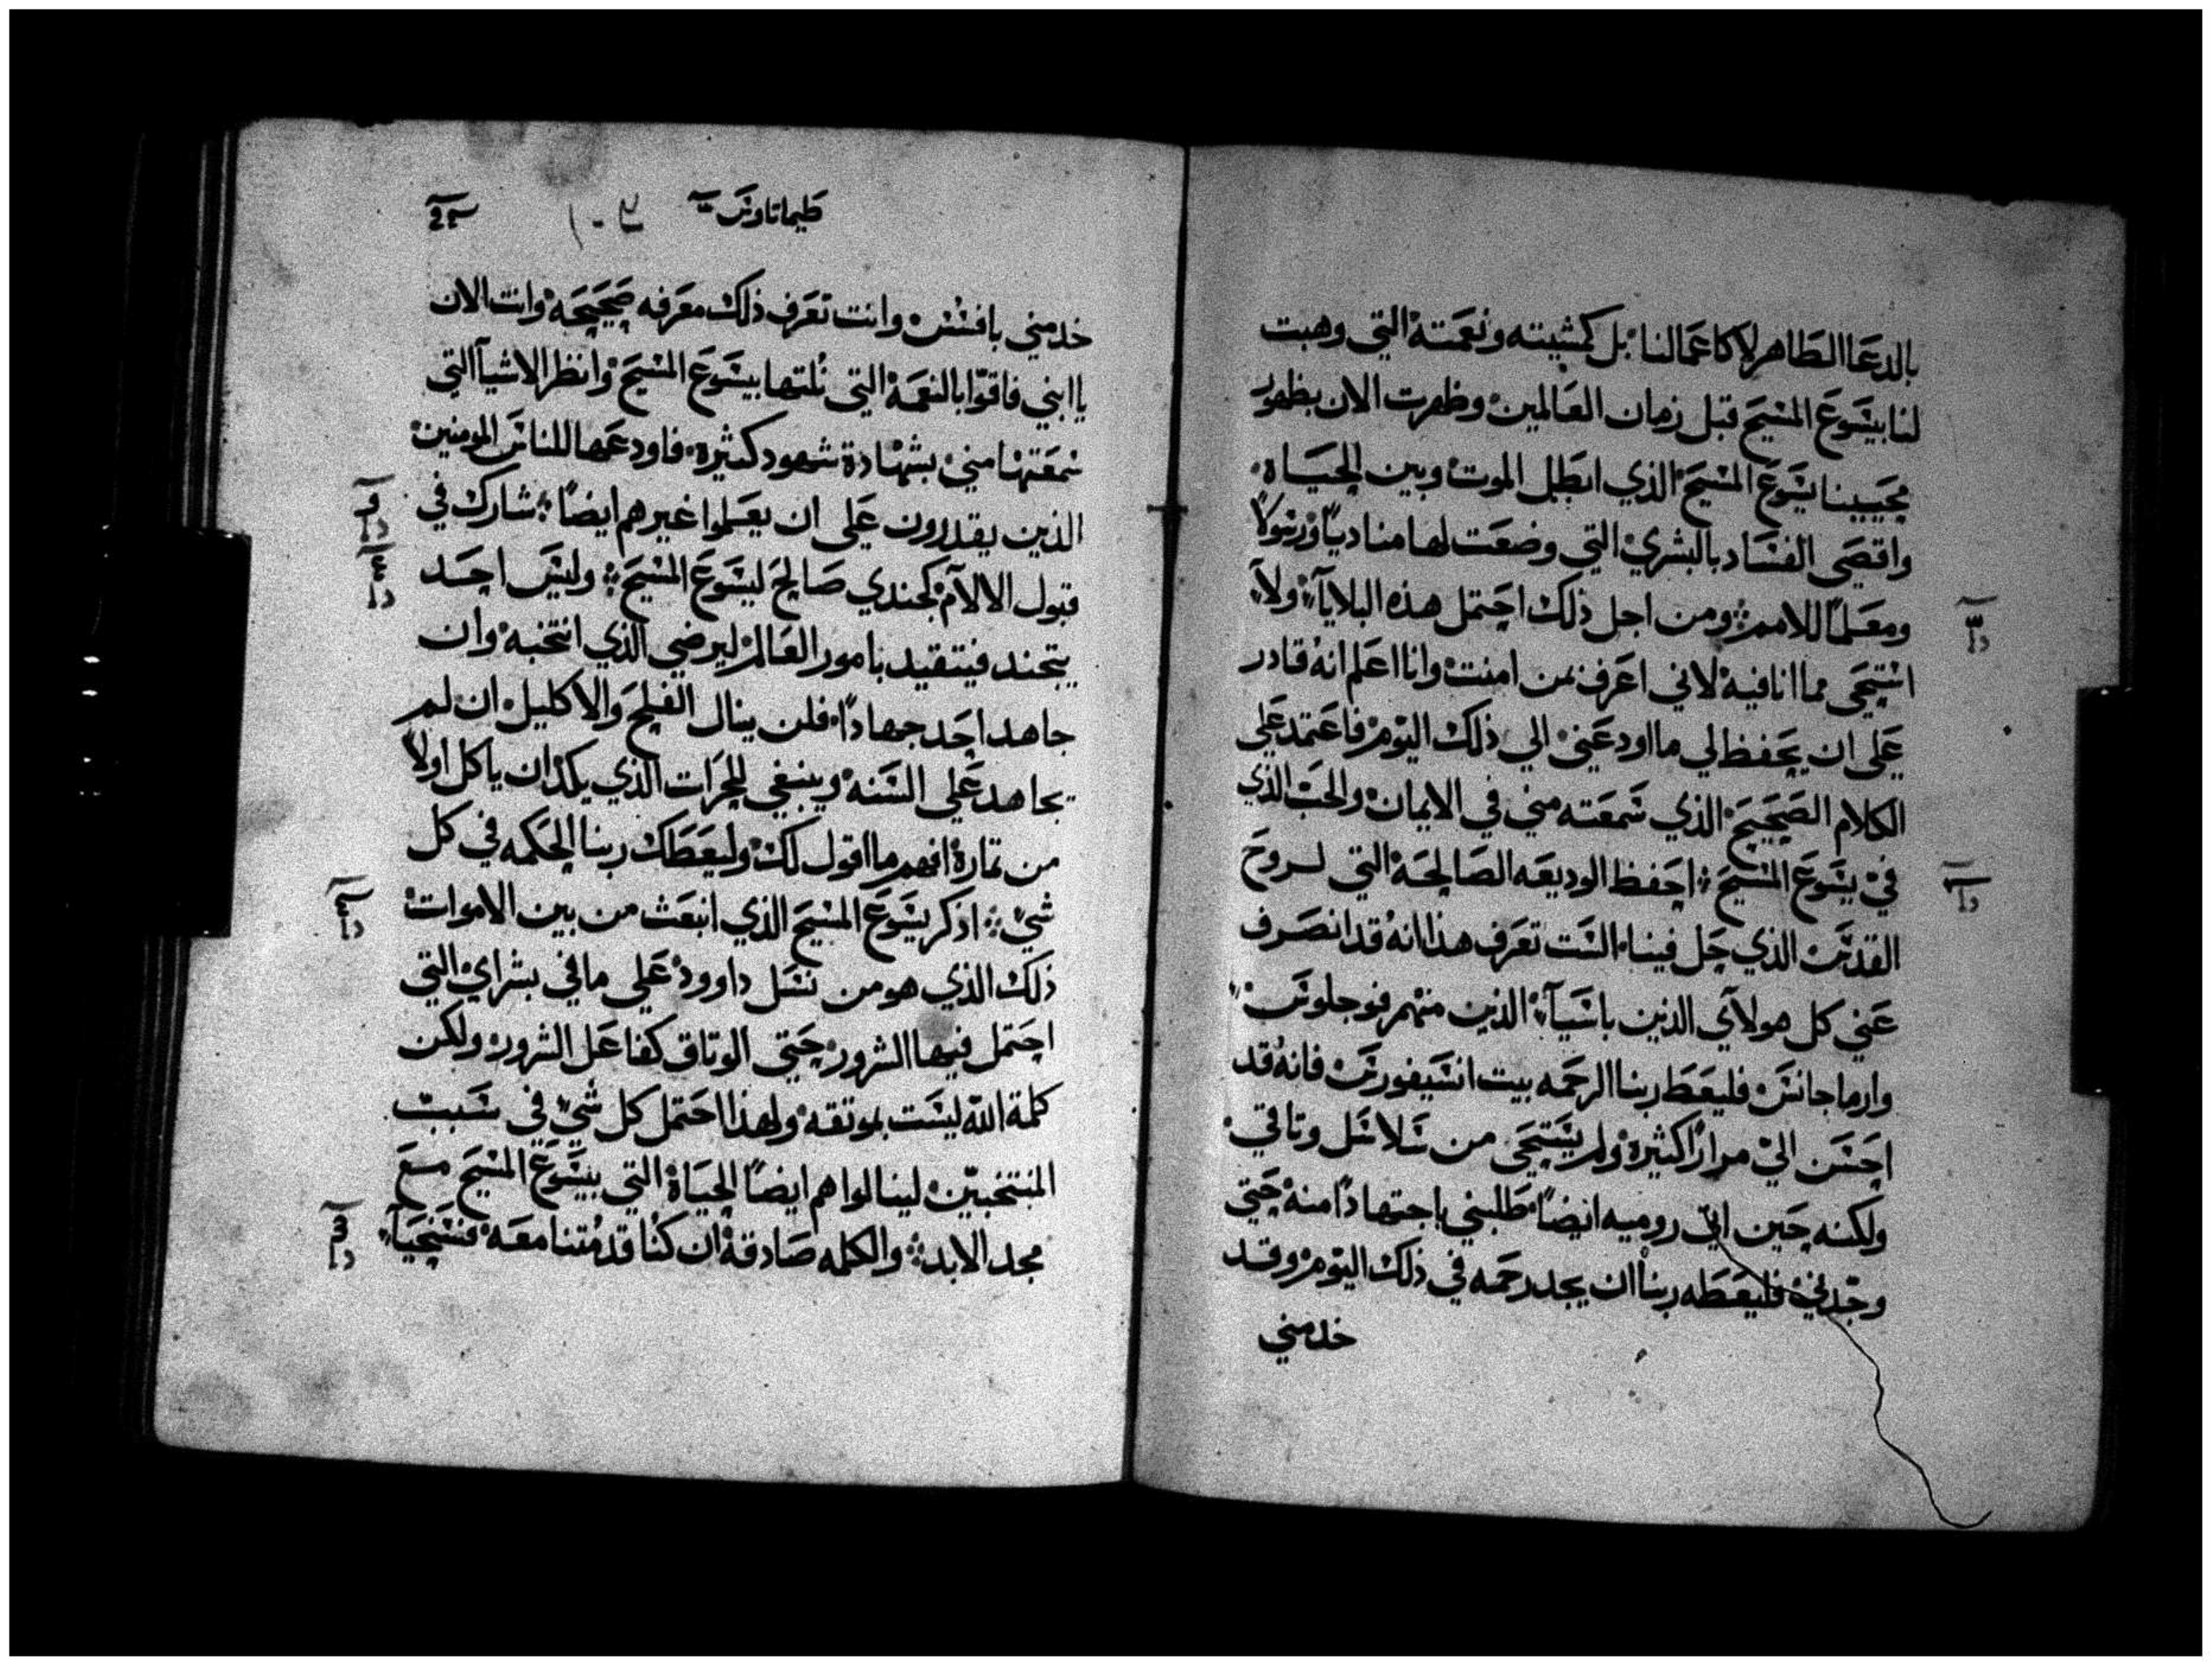 بالدعا الطاهر لا كاعمالنا بل كمشيته ونعمته التي وهبت
لنا بيسوع المسيح قبل زمان العالمين وظهرت الان بظهور
محيينا يسوع المسيح الذي ابطل الموت وبين الحياه
واقصى الفساد بالبشري التي وضعت لها مناديًا ورسولاً
ومعلمًا للامم ومن اجل ذلك احتمل هذه البلايآ ولا
استحى مما انا فيه لاني اعرف بمن امنت وانا اعلم انه قادر
على ان يحفظ لي ما اودعني الي ذلك اليوم فاعتمد علي
الكلام الصحيح الذي سمعته مني في الايمان والحب الذي
في يسوع المسيح احفظ الوديعه الصالحة التي لروح
القدس الذي حل فينا الست تعرف هذا انه قد انصرف
عني كل هولآي الذين باسيآ الذين منهم فوجلوس
وارماجانس فليعط ربنا الرحمه بيت انسيفورس فانه قد
احسن الي مرارًا كثيرة ولم يستحى من سلاسل وتاقي
ولكنه حين اتي روميه ايضًا طلبني باجتهادًا منه حتي
وجدني فليعطه ربنا ان يجد رحمه في ذلك اليوم وقد
خدمني
طيماتاوس
خدمني بافسس وانت تعرف ذلك معرفه صحيحة وانت الان
يا ابني فاقوا بالنعمة التي نلتها بيسوع المسيح وانظر الاشيآ التي
سمعتها مني بشهادة شهود كثيرة فاودعها للناس المومنين
الذين يقدرون على ان يعلموا غيرهم ايضًا شارك في
قبول الالآم كجندي صالح ليسوع المسيح وليس احد
يتجند فيتقيد بامور العالم ليرضي الذي انتخبه وان
جاهد احد جهادًا فلن ينال الفلج والاكليل ان لم
يجاهد علي السنه وينبغي للحرات الذي يكد ان ياكل اولاً
من تمارة افهم ما اقول لك وليعطك ربنا الحكمه في كل
شي اذكر يسوع المسيح الذي انبعث من بين الاموات
ذلك الذي هو من نسل داوود علي ما في بشراي التي
احتمل فيها الشرور حتي الوتاق كفاعل الشرور ولكن
كلمة الله ليست بموتقة ولهذا احتمل كل شي في سبب
المنتخبين لينالوا هم ايضًا الحياة التي بيسوع المسيح مع
مجد الابد والكلمه صادقة ان كنا قد متنا معه فسنحيآ